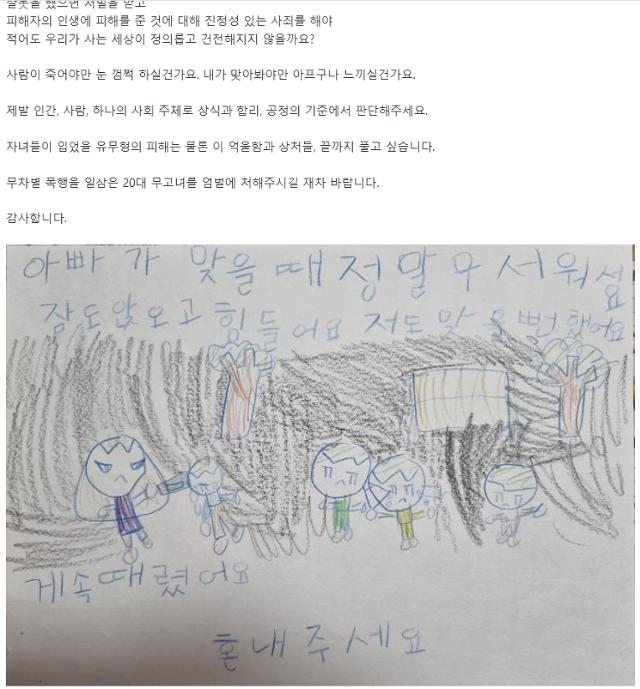 잘못을 했으면 처벌을 받고
피해자의 인생에 피해를 준 것에 대해 진정성 있는 사죄를 해야
적어도 우리가 사는 세상이 정의롭고 건전해지지 않을까요?
사람이 죽어야만 눈 껌쩍 하실건가요. 내가 맞아봐야만 아프구나 느끼실건가요.
제발 인간, 사람, 하나의 사회 주체로 상식과 합리, 공정의 기준에서 판단해주세요.
자녀들이 입었을 유무형의 피해는 물론 이 억울함과 상처들, 끝까지 풀고 싶습니다.
무차별 폭행을 일삼은 20대 무고녀를 엄벌에 처해주시길 재차 바랍니다.
감사합니다.
아빠가 맞을 때 정말 무서워서요
잠도 않오고 힘들어요 저도 맞을뻔 했어요
게속때렸어요
혼내주세요